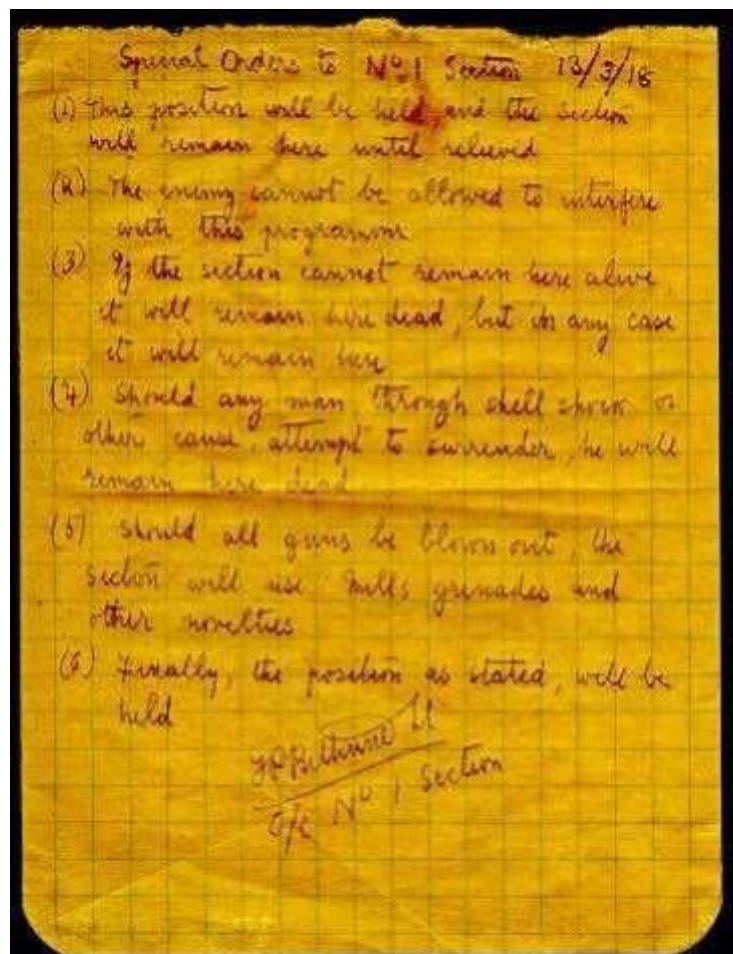 Special Orders to No 1 Section 13/3/18
(1) This position will be held, and the section
will remain here until relieved
(2) The enemy cannot be allowed to interfere
with this programme
(3) If the section cannot remain here alive,
it will remain here dead, but in any case
it will remain here
(4) Should any man through shell shock or
other cause, attempt to surrender, he will
remain here dead
(5) Should all guns be blown out, the
section will use Mills grenades and
other novelties
(6) Finally, the position as stated, will be
held
FP Bethune Lt
O/C No 1 Section